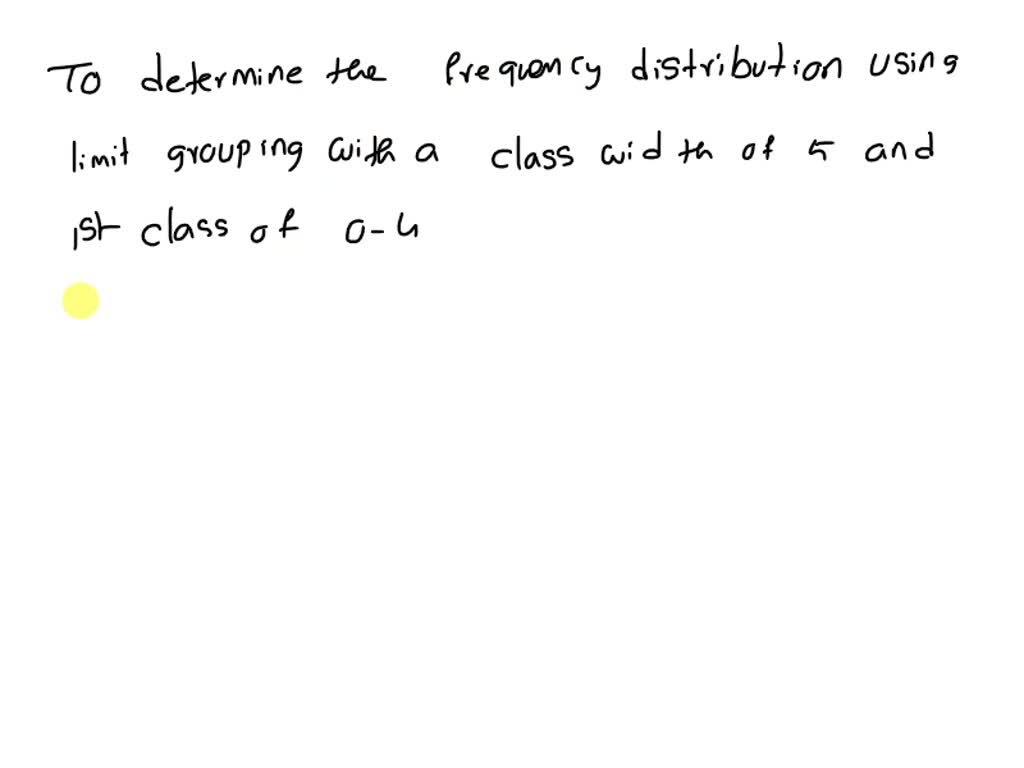 To determine the frequency distribution using
limit grouping with a class width of 5 and
1st class of 0-4